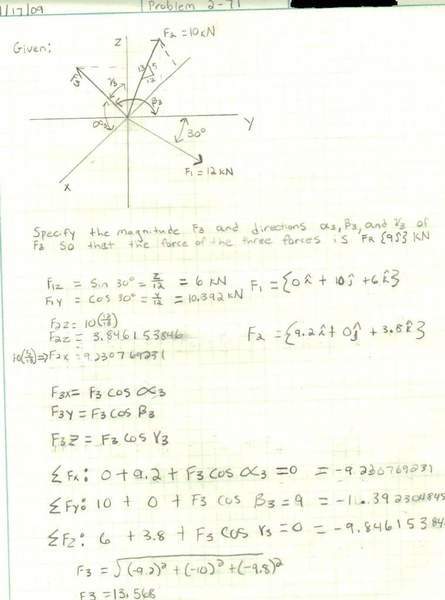 1/17/09 Problem 2-71
Given:
Z
F2 = 10 kN
13 5
12
F3
γ3
α3
β3
Y
30°
X
F1 = 12 kN
Specify the magnitude F3 and directions α3, β3, and γ3 of
F3 so that the force of the three forces is FR {9ĵ} kN
F1z = Sin 30° = Z/12 = 6 kN F1 = {0î + 10ĵ + 6k̂}
F1y = Cos 30° = Y/12 = 10.392 kN
F2z = 10(5/13)
F2z = 3.846153846
F2 = {9.2î + 0ĵ + 3.8k̂}
10(12/13) ⇒ F2x = 9.230769231
F3x = F3 cos α3
F3y = F3 cos β3
F3z = F3 cos γ3
ΣFx: 0 + 9.2 + F3 cos α3 = 0 = -9.230769231
ΣFy: 10 + 0 + F3 cos β3 = 9 = -1.392304845
ΣFz: 6 + 3.8 + F3 cos γ3 = 0 = -9.84615384
F3 = √(-9.2)² + (-10)² + (-9.8)²
F3 = 13.568